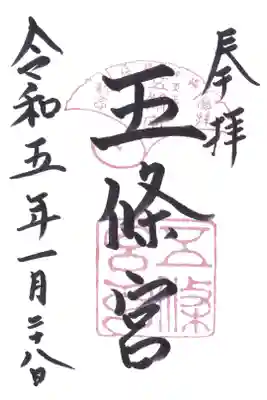 奉拝
五條宮
令和五年一月二十八日
五條宮